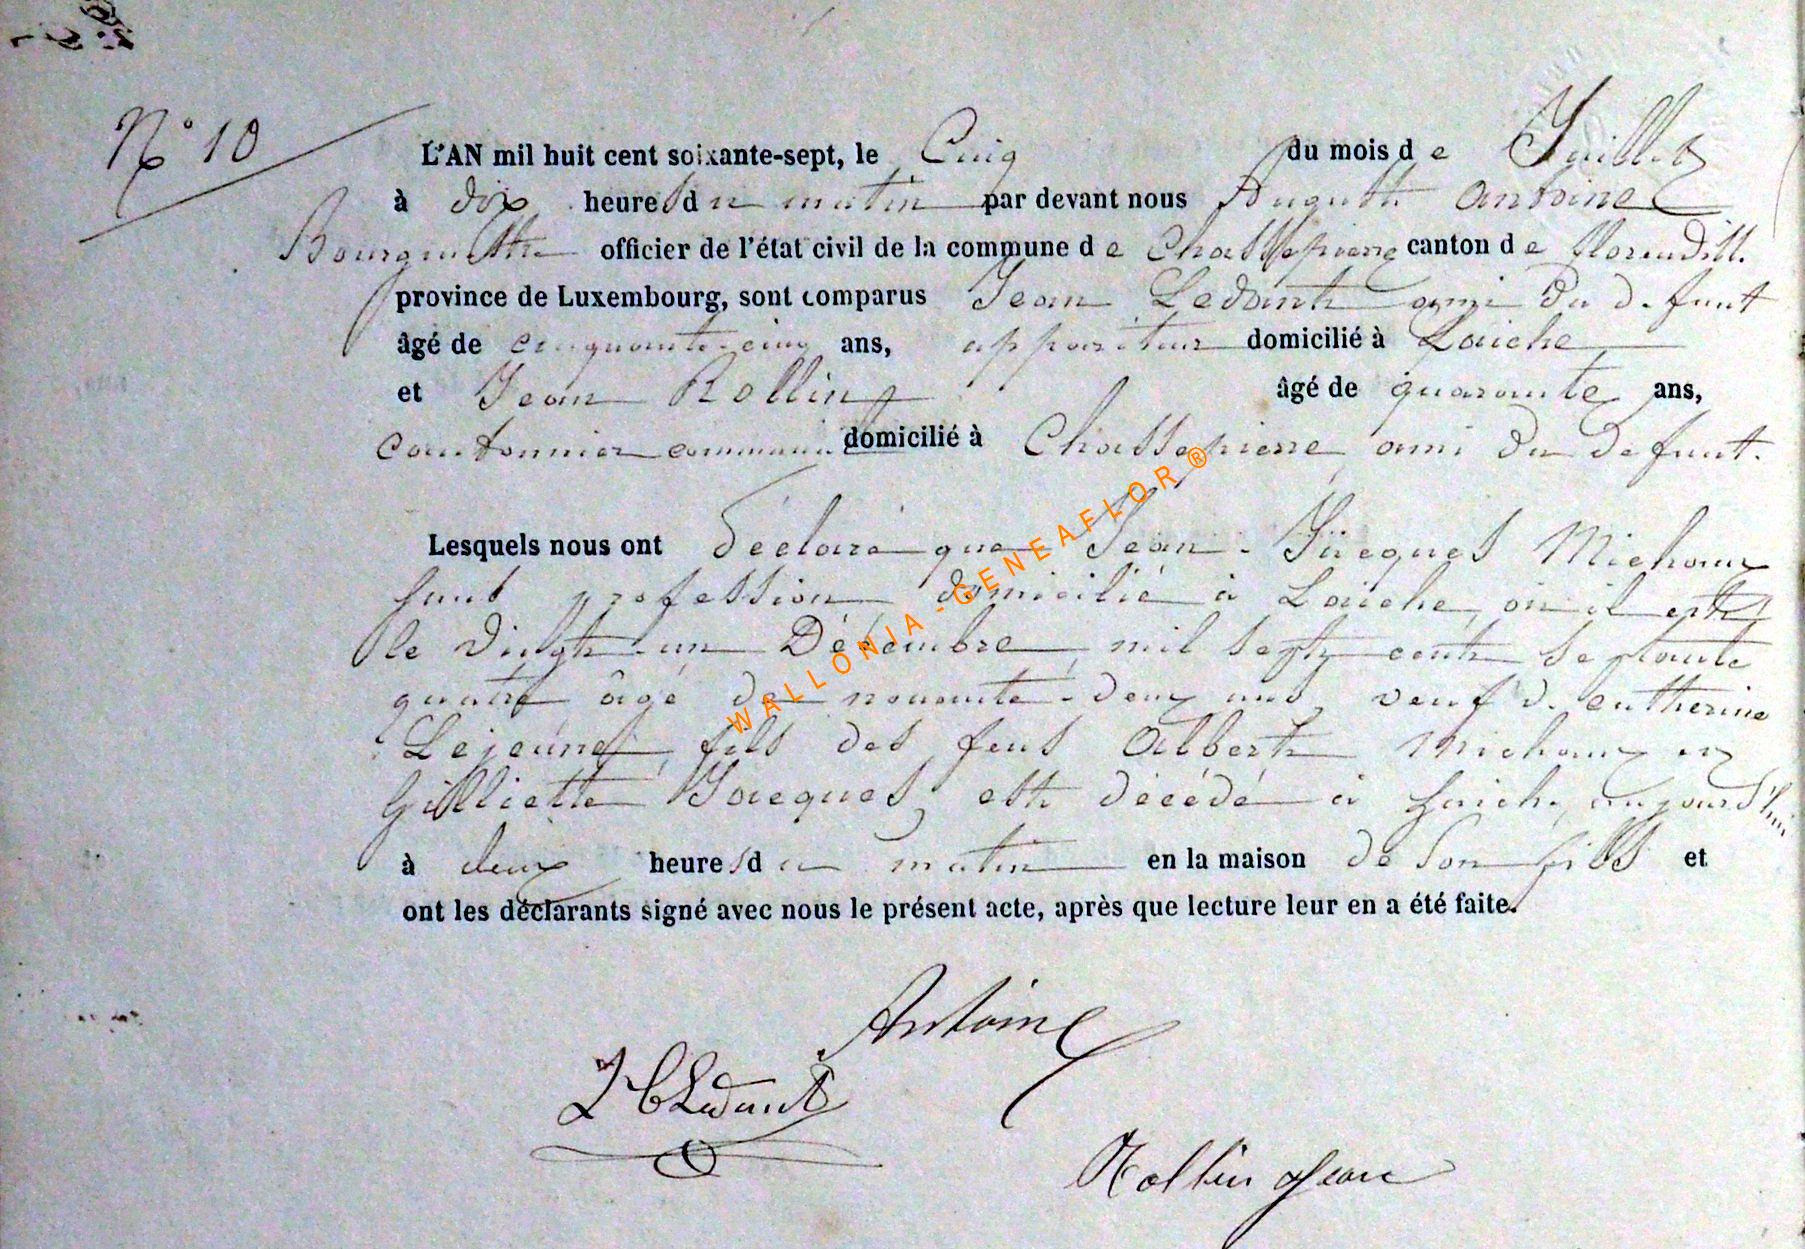 N° 10
L'AN mil huit cent soixante-sept, le Cinq du mois de Juillet
à dix heures du matin par devant nous Auguste Antoine
Bourgmestre officier de l'état civil de la commune de Chassepierre canton de florenvill.
province de Luxembourg, sont comparus Jean Ledant ami du defunt
âgé de cinquante-cinq ans, appariteur domicilié à Laiche
et Jean Rollin âgé de quarante ans,
cantonnier communal domicilié à Chassepierre ami du defunt.
Lesquels nous ont déclaré que Jean-Jacques Michaux
sans profession domicilié à Laiche, où il est né
le vingt-un Décembre mil sept cent septante
quatre âgé de nonante-deux ans, veuf de catherine
Lejeune, fils des feus Albert Michaux et
Gilliette Jacques, est décédé à Laiche, aujourd'hui
à deux heures du matin en la maison de son fils et
ont les déclarants signé avec nous le présent acte, après que lecture leur en a été faite.
WALLONIA-GENEAFLOR®
Antoine
Ledant
Rollin Jean